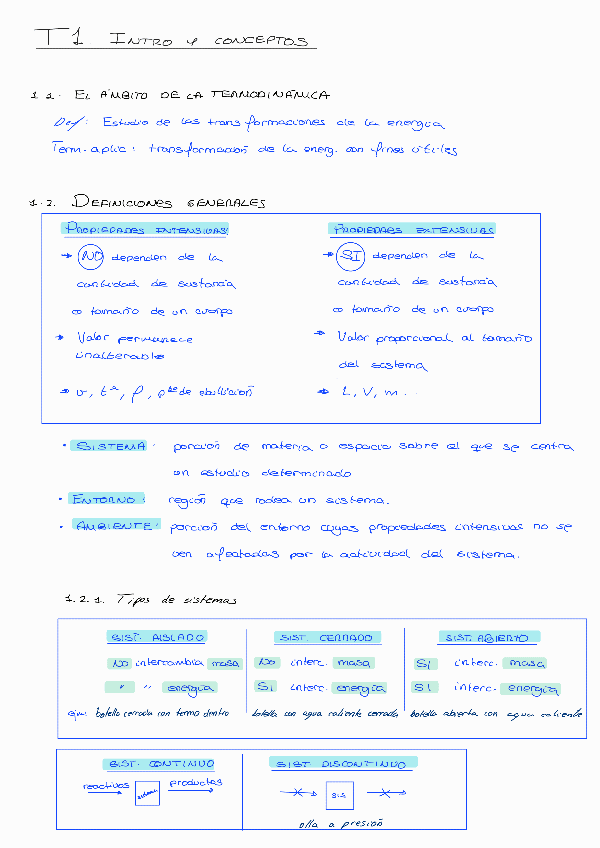 T1 INTRO Y CONCEPTOS
1.1. EL ÁMBITO DE LA TERMODINÁMICA
Def: Estudio de las transformaciones de la energía
Term. aplic: transformación de la energ. con fines útiles
1.2. DEFINICIONES GENERALES
PROPIEDADES INTENSIVAS
→ NO dependen de la
cantidad de sustancia
o tamaño de un cuerpo
→ Valor permanece
inalterable
→ v, tª, ρ, pto de ebullición
PROPIEDADES EXTENSIVAS
→ SI dependen de la
cantidad de sustancia
o tamaño de un cuerpo
→ Valor proporcional al tamaño
del sistema
→ L, V, m...
· SISTEMA: porción de materia o espacio sobre el que se centra
un estudio determinado
· ENTORNO: región que rodea un sistema.
· AMBIENTE: porción del entorno cuyas propiedades intensivas no se
ven afectadas por la actividad del sistema.
1.2.1. Tipos de sistemas
SIST. AISLADO
No intercambia masa
" " energía
ejm: botella cerrada con termo dentro
SIST. CERRADO
No interc. masa
SI interc. energía
botella con agua caliente cerrada
SIST. ABIERTO
SI interc. masa
SI interc. energía
botella abierta con agua caliente
SIST. CONTINUO
reactivos → sistema productos →
SIST. DISCONTINUO
SIS
olla a presión